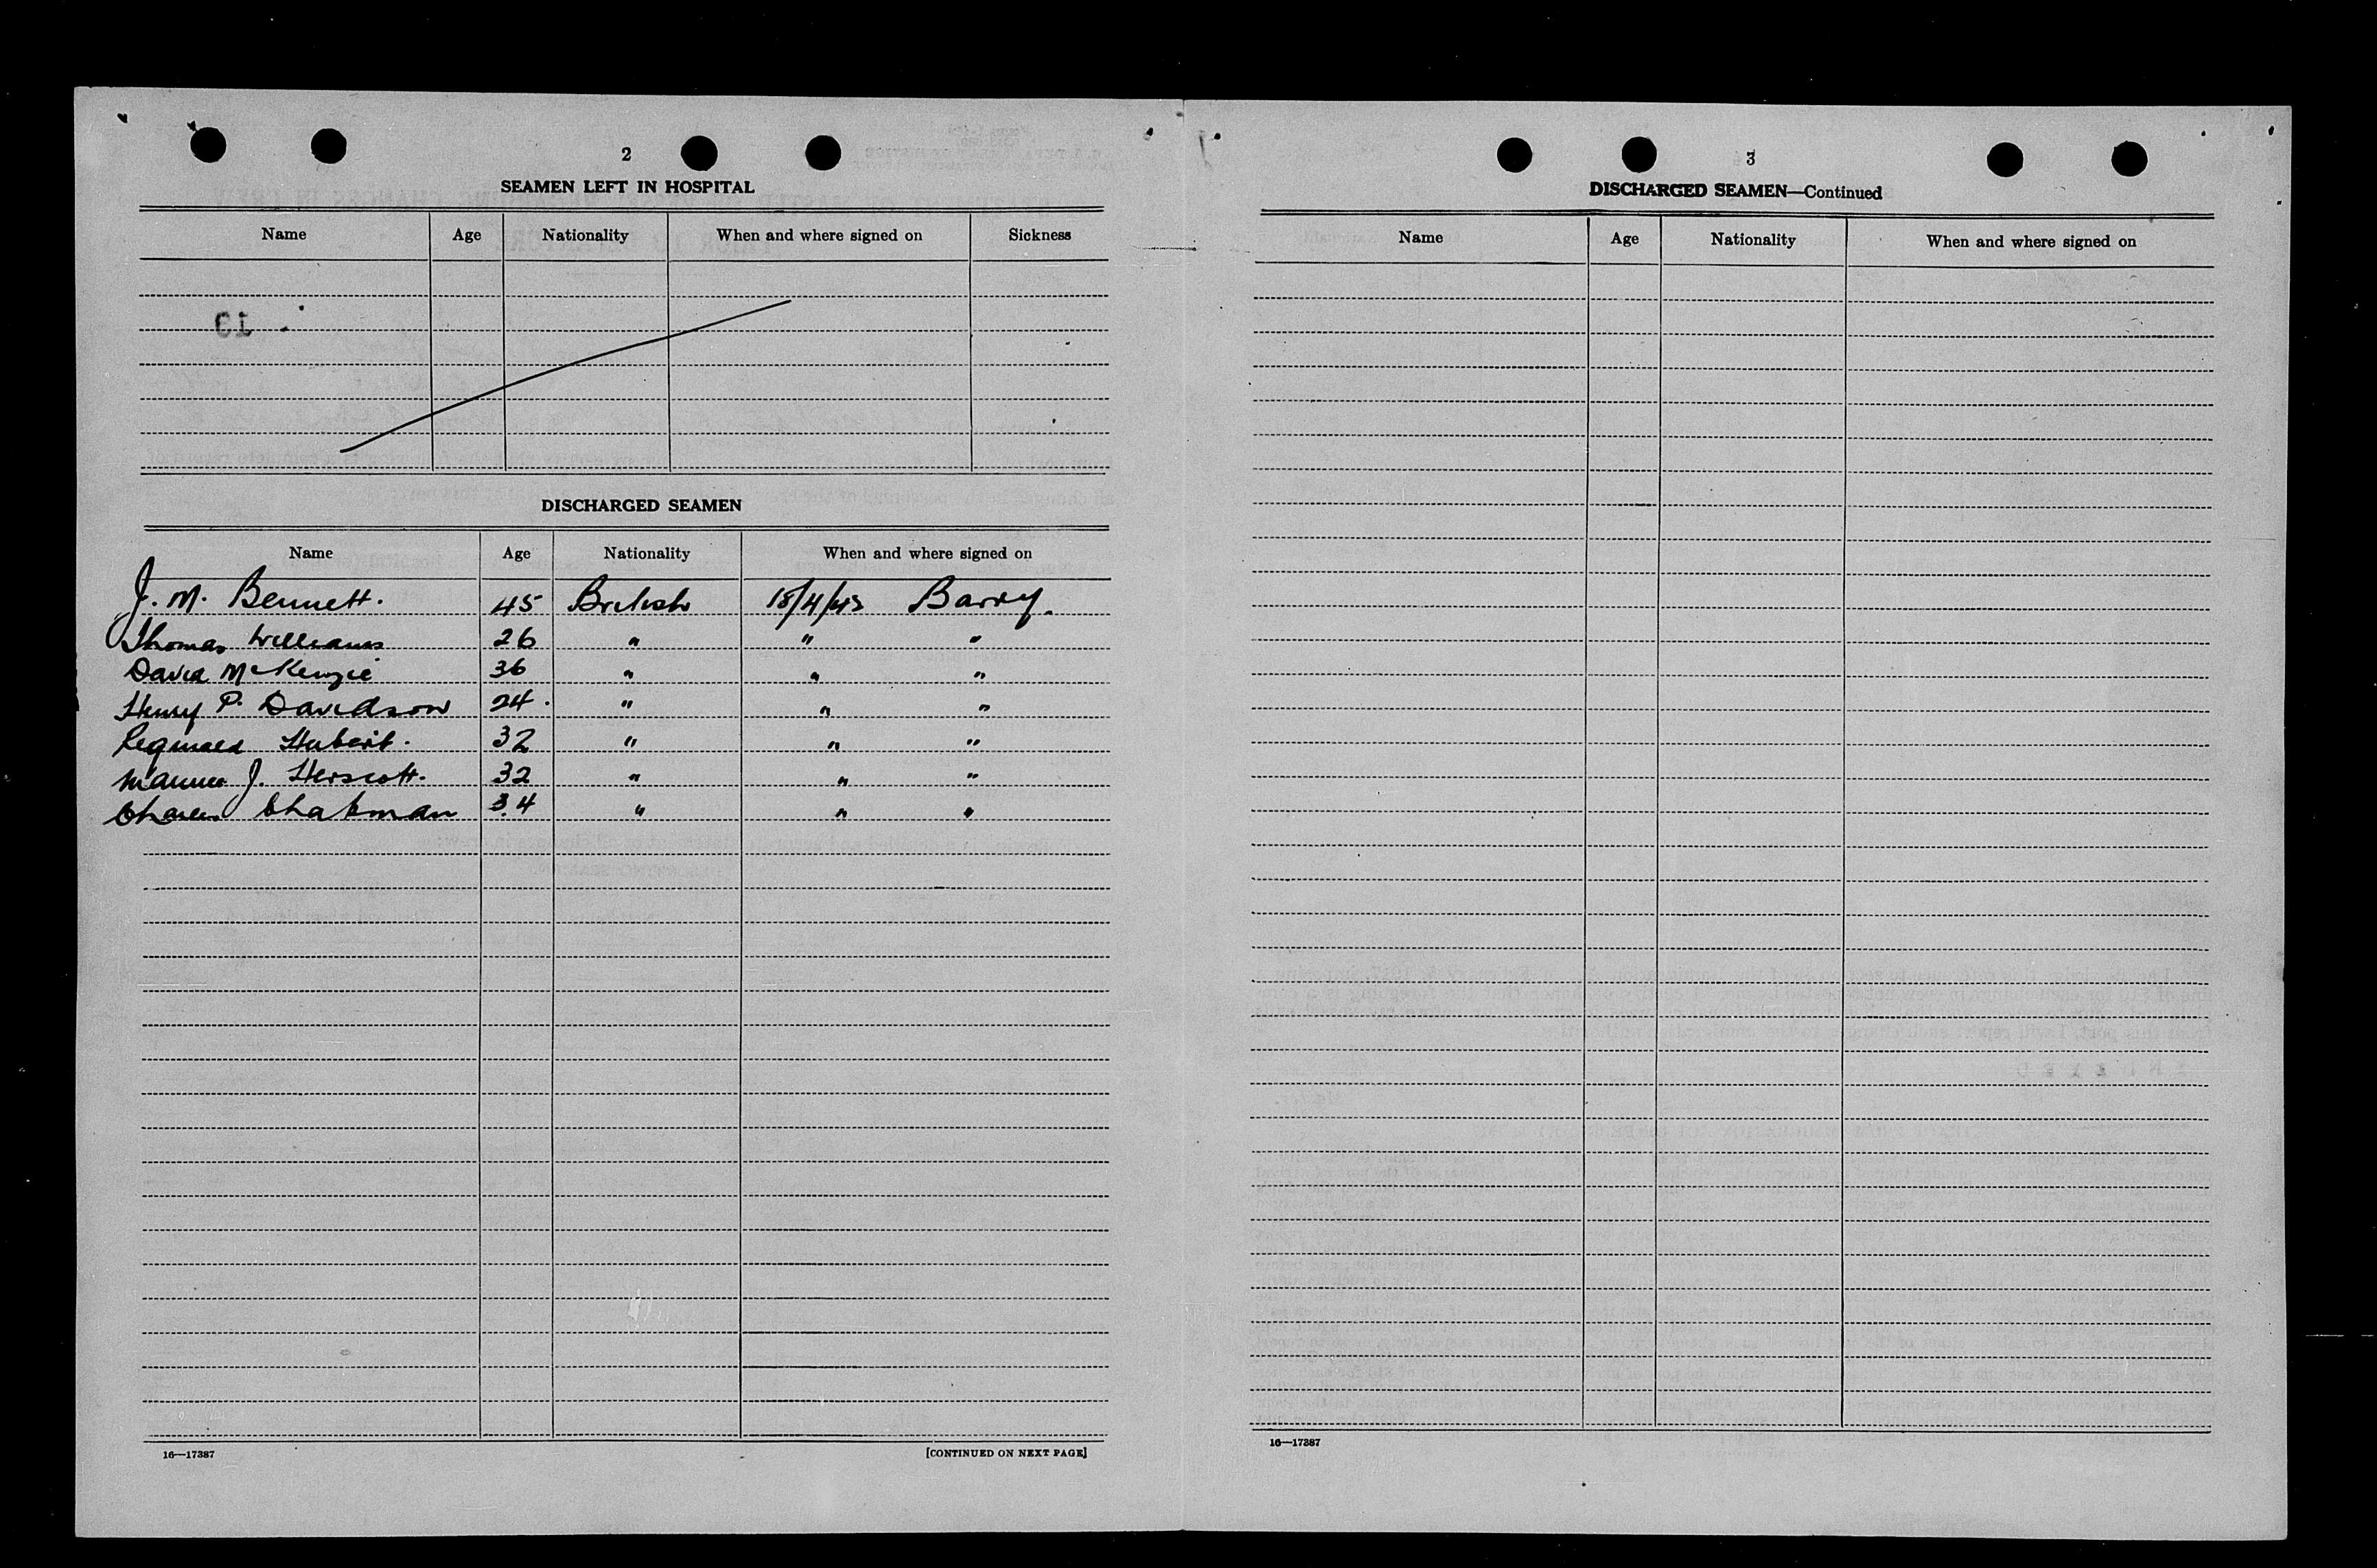 2
SEAMEN LEFT IN HOSPITAL
Name Age Nationality When and where signed on Sickness
13
DISCHARGED SEAMEN
Name Age Nationality When and where signed on
J. M. Bennett. 45 British 18/4/43 Barry.
Thomas Williams 26 " " "
David McKenzie 36 " " "
Henry P. Davidson 24. " " "
Reginald Hubert. 32 " " "
J. Herscott. 32 " " "
Charles Chapman 34 " " "
16—17387 [CONTINUED ON NEXT PAGE]
3
DISCHARGED SEAMEN—Continued
Name Age Nationality When and where signed on
16—17387